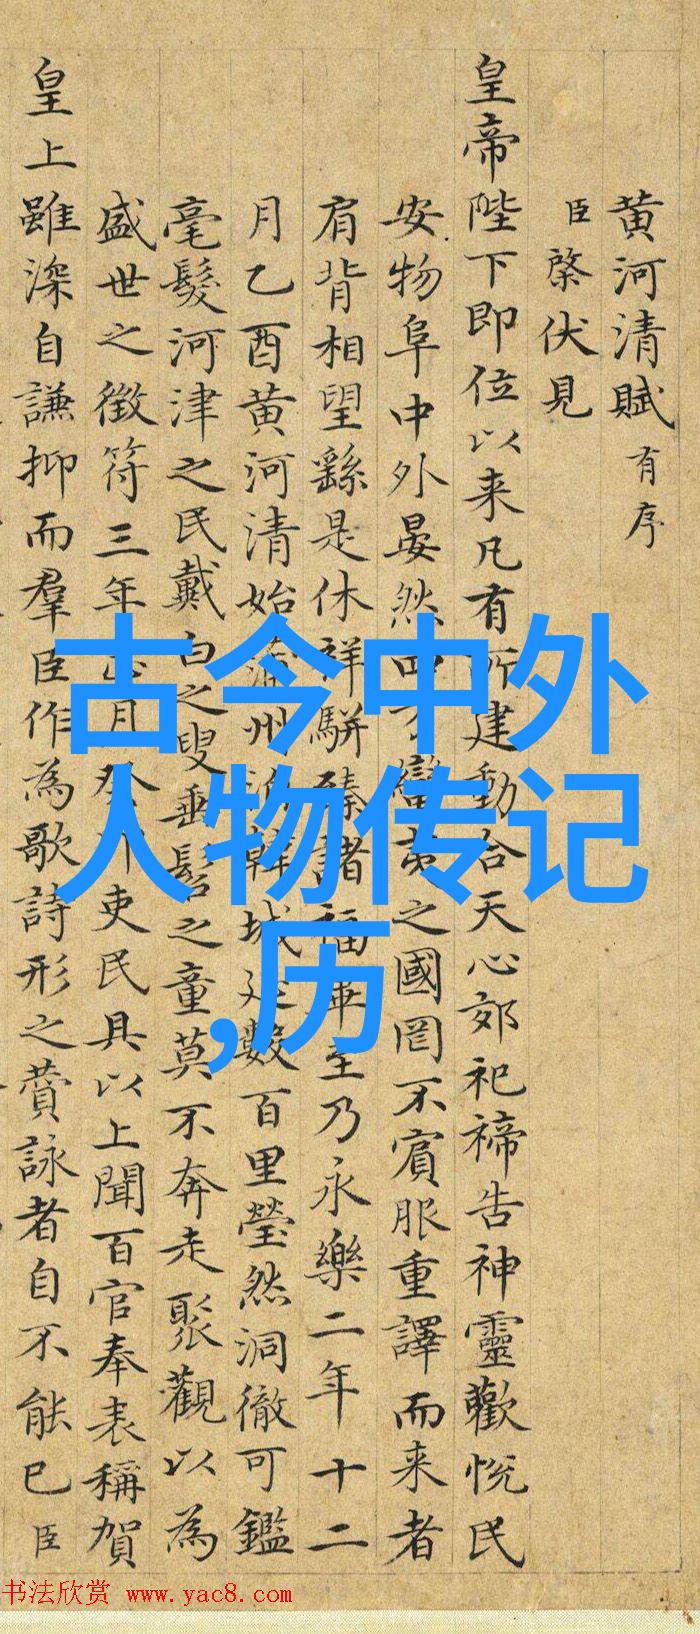 黄河清賦 有序
臣棨伏見
皇帝陛下即位以来凡有所建動合天心郊祀禘告神靈歡悦民
安物阜中外晏然四方蠻夷之國罔不賓服重譯而来者
肩背相望繇是休祥駢臻諸福畢至乃永樂二年十二
月乙酉黄河清始蒲州韓城延數百里瑩然洞徹可鑑
毫髮河津之民戴白之叟垂髫之童莫不奔走聚觀以為
盛世之徵符三年正月癸卯吏民具以上聞百官奉表稱賀
皇上雖深自謙抑而羣臣作為歌詩形之賛詠者自不能已臣
古今中外
人物传记
,历
书法欣赏 www.yac8.com